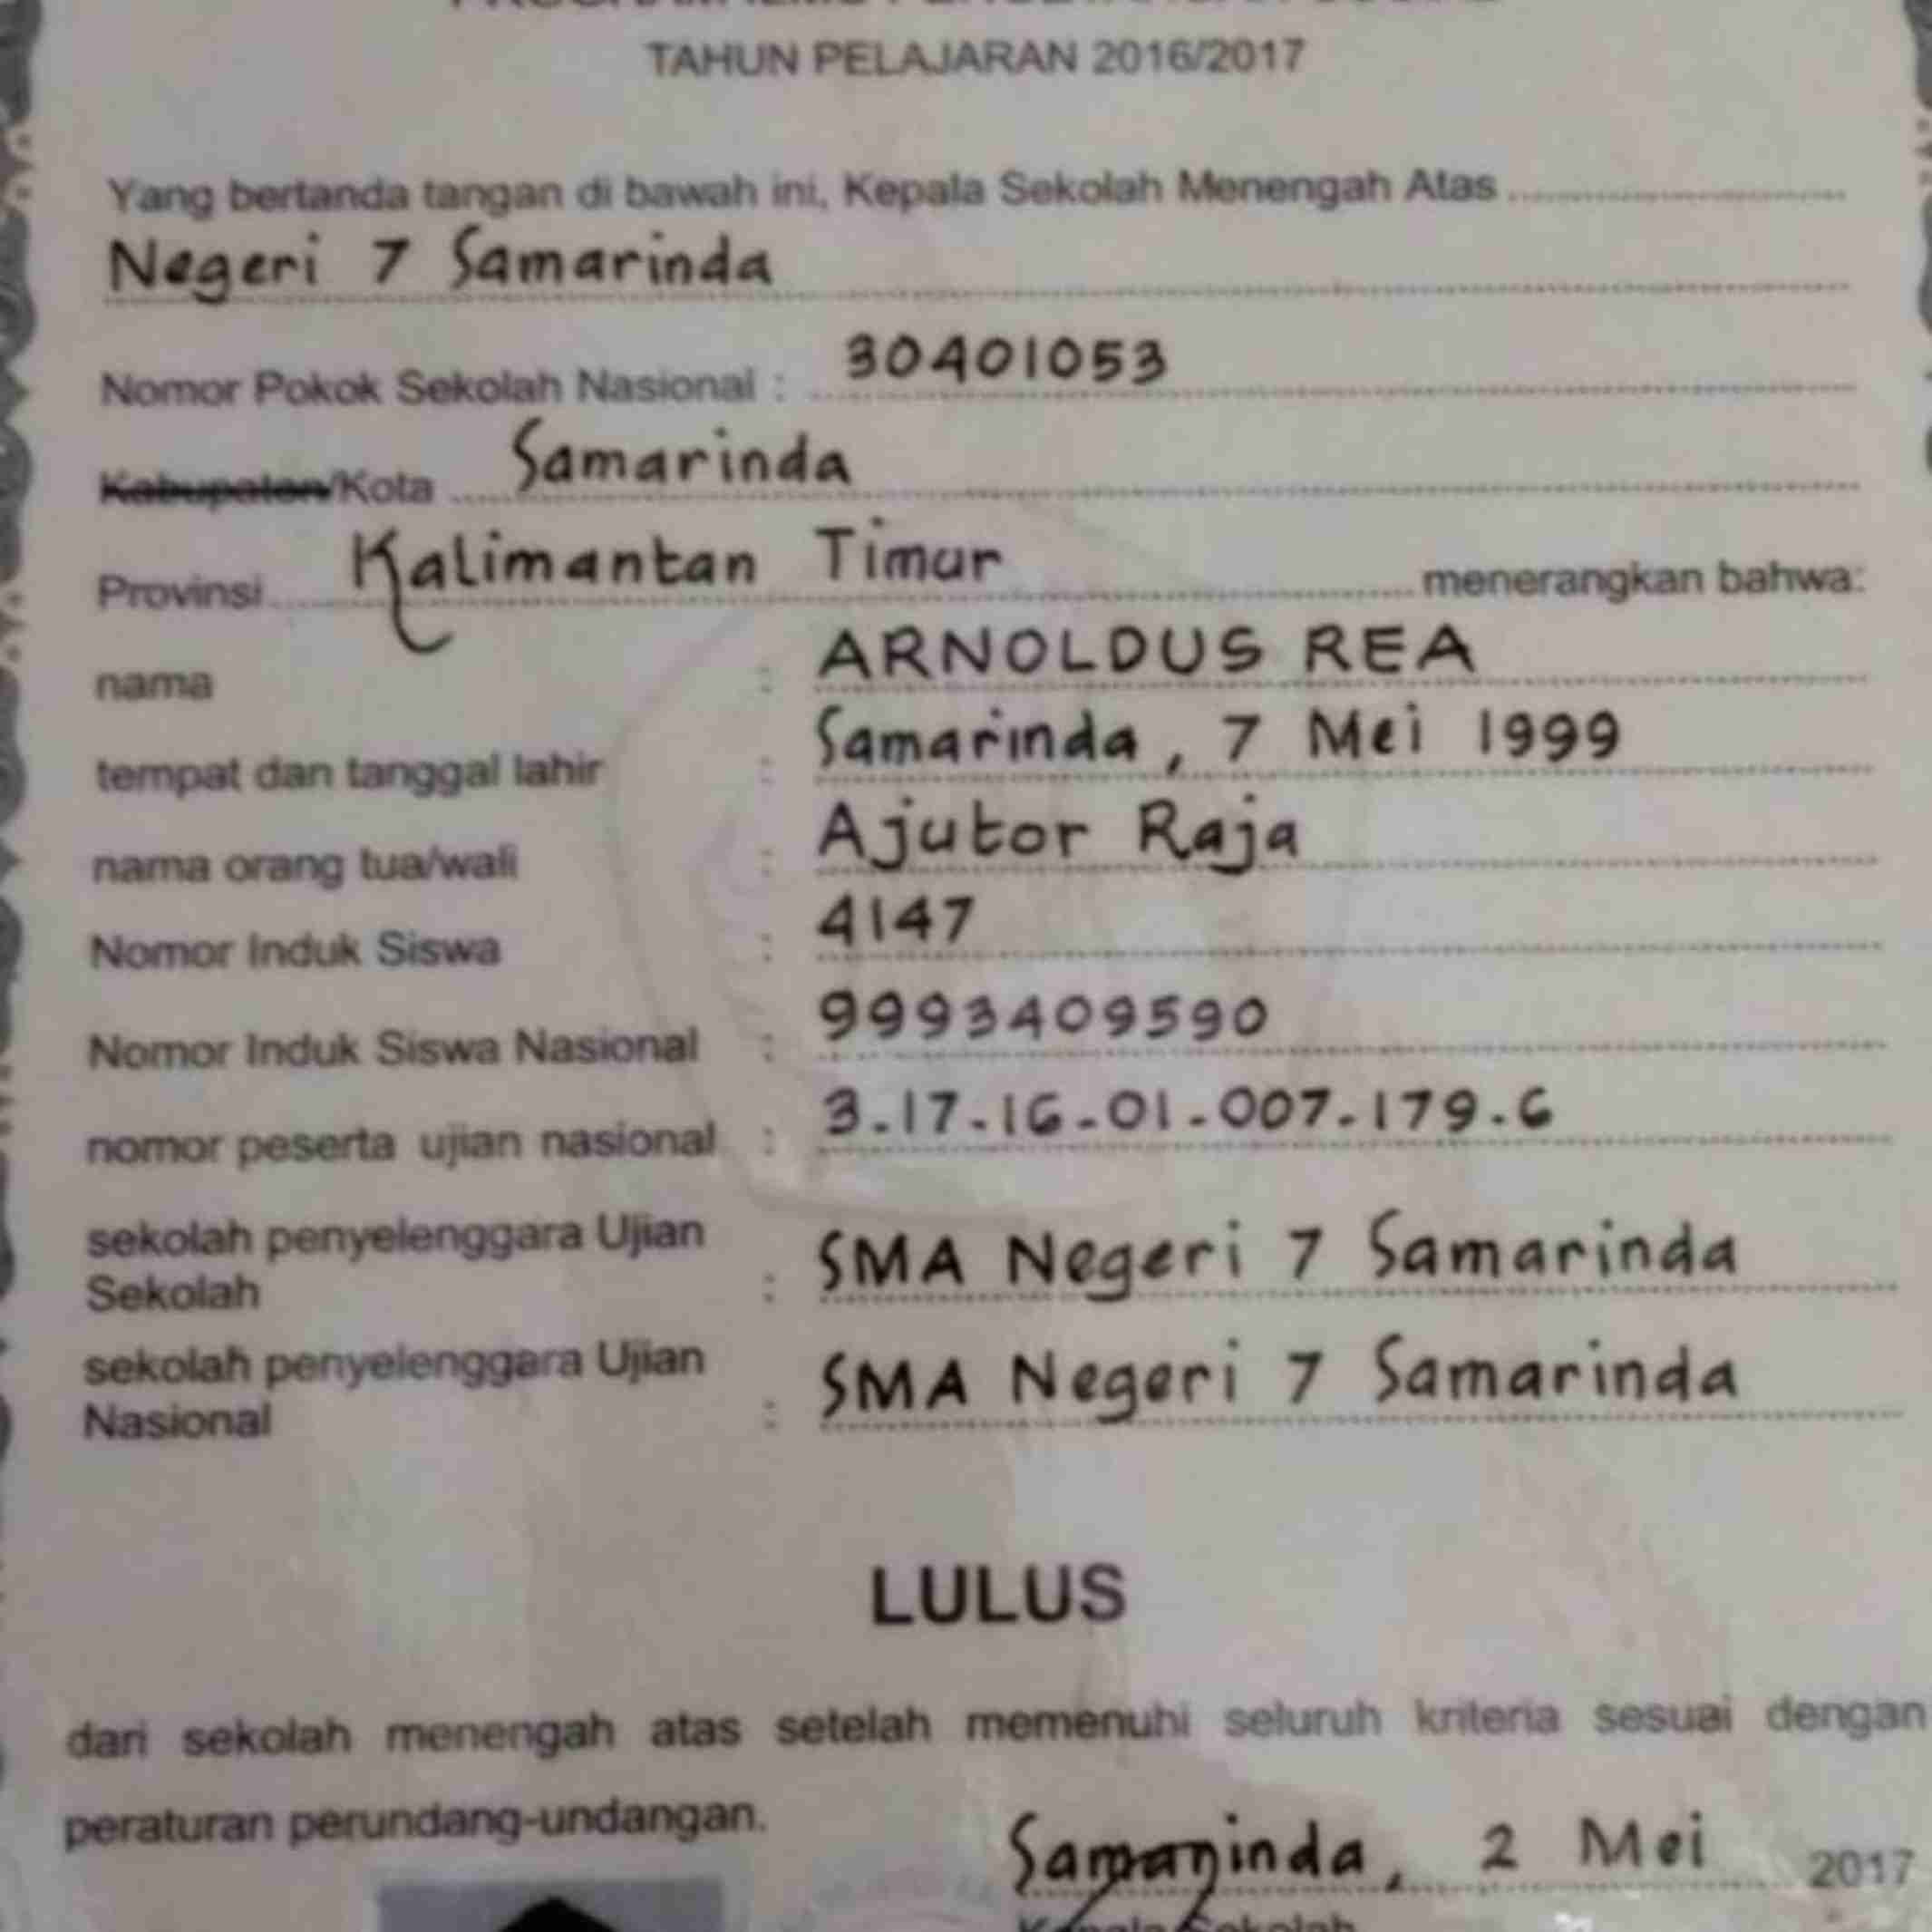 TAHUN PELAJARAN 2016/2017
Yang bertanda tangan di bawah ini, Kepala Sekolah Menengah Atas
Negeri 7 Samarinda
Nomor Pokok Sekolah Nasional : 30401053
Kabupaten/Kota Samarinda
Provinsi Kalimantan Timur menerangkan bahwa:
nama : ARNOLDUS REA
tempat dan tanggal lahir : Samarinda, 7 Mei 1999
nama orang tua/wali : Ajutor Raja
Nomor Induk Siswa : 4147
Nomor Induk Siswa Nasional : 9993409590
nomor peserta ujian nasional : 3-17-16-01-007-179-6
sekolah penyelenggara Ujian
Sekolah : SMA Negeri 7 Samarinda
sekolah penyelenggara Ujian
Nasional : SMA Negeri 7 Samarinda
LULUS
dari sekolah menengah atas setelah memenuhi seluruh kriteria sesuai dengan
peraturan perundang-undangan.
Samarinda, 2 Mei 2017